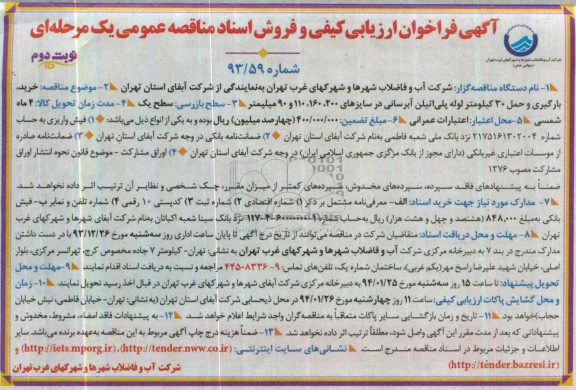 آگهی فراخوان ارزیابی کیفی و فروش اسناد مناقصه عمومی یک مرحله‌ای
شماره ۹۳/۵۹
نوبت دوم
۱- نام دستگاه مناقصه‌گزار: شرکت آب و فاضلاب شهرها و شهرکهای غرب تهران به‌نمایندگی از شرکت آبفای استان تهران ۲- موضوع مناقصه: خرید،
بارگیری و حمل ۳۰ کیلومتر لوله پلی‌اتیلن آبرسانی در سایزهای ۲۰۰، ۱۶۰، ۱۱۰ و ۹۰ میلیمتر ۳- سطح بازرسی: سطح یک ۴- مدت زمان تحویل کالا: ۴ ماه
شمسی ۵- محل اعتبار: اعتبارات عمرانی ۶- مبلغ تضمین: ۴۰۰/۰۰۰/۰۰۰ (چهارصد میلیون) ریال بوده و به یکی از انواع ذیل می‌باشد: ۱) فیش واریزی به حساب
شماره ۲۱۷۵۱۶۱۳۰۲۰۰۴ نزد بانک ملی شعبه فاطمی به‌نام شرکت آبفای استان تهران ۲) ضمانت‌نامه بانکی در وجه شرکت آبفای استان تهران ۳) ضمانت‌نامه صادره
از موسسات اعتباری غیربانکی (دارای مجوز از بانک مرکزی جمهوری اسلامی ایران) در وجه شرکت آبفای استان تهران ۴) اوراق مشارکت - موضوع قانون نحوه انتشار اوراق
مشارکت مصوب ۱۳۷۶
ضمناً به پیشنهادهای فاقد سپرده، سپرده‌های مخدوش، سپرده‌های کمتر از میزان مقرر، چک شخصی و نظایر آن ترتیب اثر داده نخواهد شد.
۷- مدارک مورد نیاز جهت خرید اسناد: الف- معرفی‌نامه مشتمل بر ذکر ۱) شماره اقتصادی ۲) شماره ثبت ۳) کدپستی ۱۰ رقمی ۴) شماره تلفن و نمابر ب- فیش
بانکی به‌مبلغ ۸۴۸/۰۰۰ (هشتصد و چهل و هشت هزار) ریال به‌حساب شماره نزد بانک سینا شعبه اکباتان به‌نام شرکت آبفای شهرها و شهرکهای غرب
تهران ۸- مهلت و محل دریافت اسناد: متقاضیان شرکت در مناقصه می‌توانند از تاریخ درج آگهی تا پایان ساعت اداری روز سه‌شنبه مورخ ۹۳/۱۲/۲۶ با در دست داشتن
مدارک مندرج در بند ۷ به دبیرخانه مرکزی شرکت آب و فاضلاب شهرها و شهرکهای غرب تهران به نشانی: تهران- کیلومتر ۷ جاده مخصوص کرج، تهرانسر مرکزی، بلوار
اصلی، خیابان شهید علیرضا راسخ مهر (یکم غربی)، ساختمان شماره یک، تلفن‌های تماس: ۹-۴۴۵۰۸۳۳۶ مراجعه و نسبت به دریافت اسناد اقدام نمایند ۹- مهلت و محل
تحویل پیشنهاد: تا ساعت ۱۵ روز سه‌شنبه مورخ ۹۴/۰۱/۲۵ به دبیرخانه مرکزی شرکت آبفای شهرها و شهرکهای غرب تهران در قبال اخذ رسید تحویل نمایند. ۱۰- زمان
و محل گشایش پاکات ارزیابی کیفی: ساعت ۱۱ روز چهارشنبه مورخ ۹۴/۰۱/۲۶ در محل ذیحسابی شرکت آبفای استان تهران (به‌نشانی: تهران- خیابان فاطمی- نبش خیابان
حجاب) خواهد بود. ۱۱- تاریخ و زمان بازگشایی سایر پاکات متعاقباً به مناقصه‌گران واجد شرایط اعلام خواهد شد. ۱۲- به پیشنهادات فاقد امضاء، مشروط، مخدوش و
پیشنهاداتی که بعد از مدت مقرر این آگهی واصل شود، مطلقاً ترتیب اثر داده نخواهد شد. ۱۳- ضمناً هزینه درج چاپ آگهی مربوط به این مناقصه به‌عهده برنده می‌باشد. سایر
اطلاعات و جزئیات مربوط در اسناد مناقصه مندرج است. نشانی‌های سایت اینترنتی: (http://tender.nww.co.ir)، (http://iets.mporg.ir) و
(http://tender.bazresi.ir)
شرکت آب و فاضلاب شهرها و شهرکهای غرب تهران